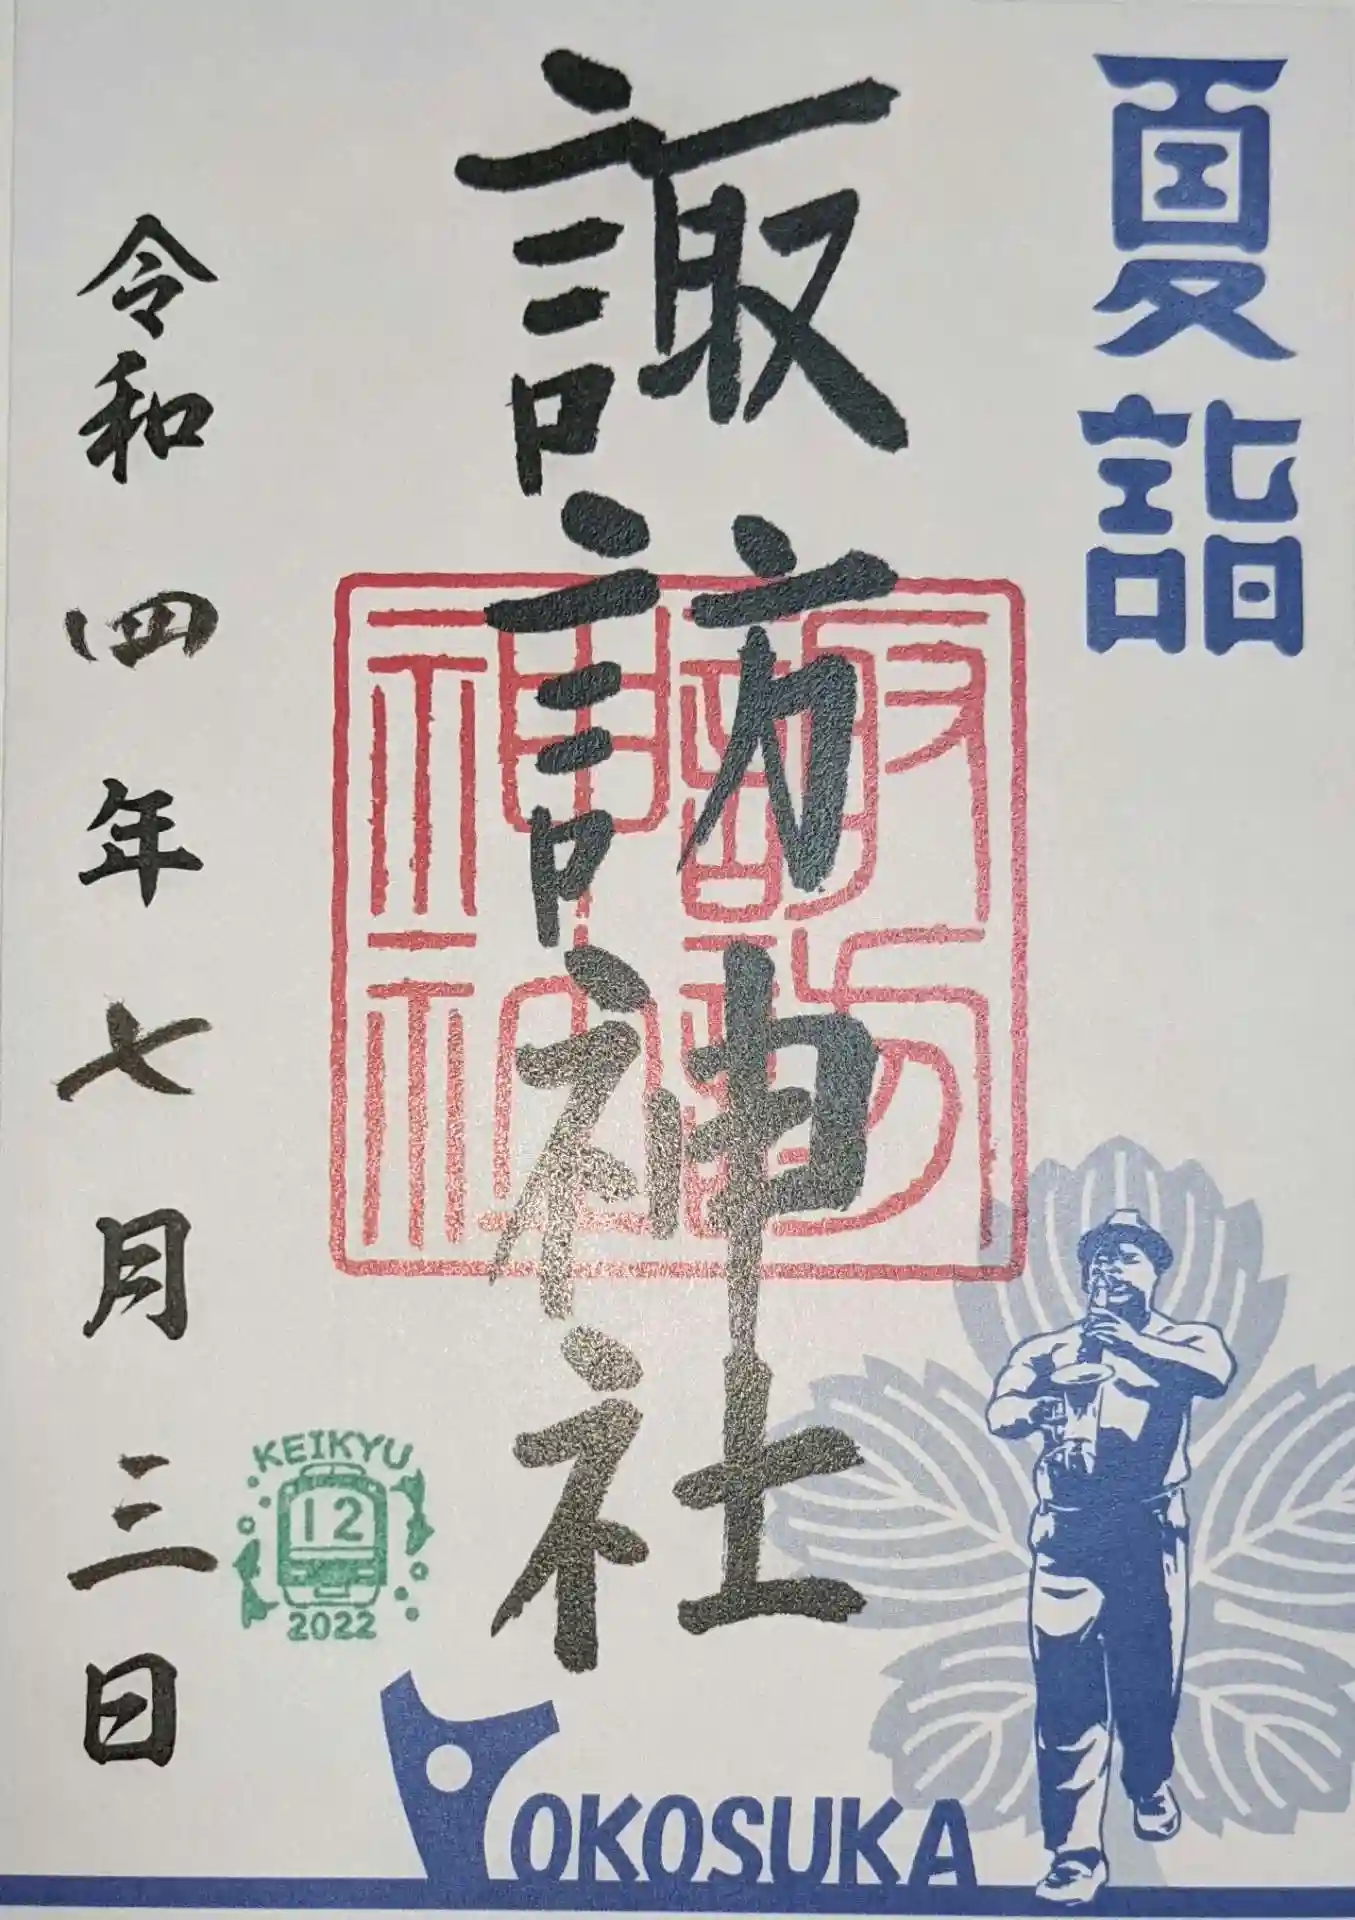 夏詣
諏訪神社
令和四年七月三日
KEIKYU
12
2022
YOKOSUKA